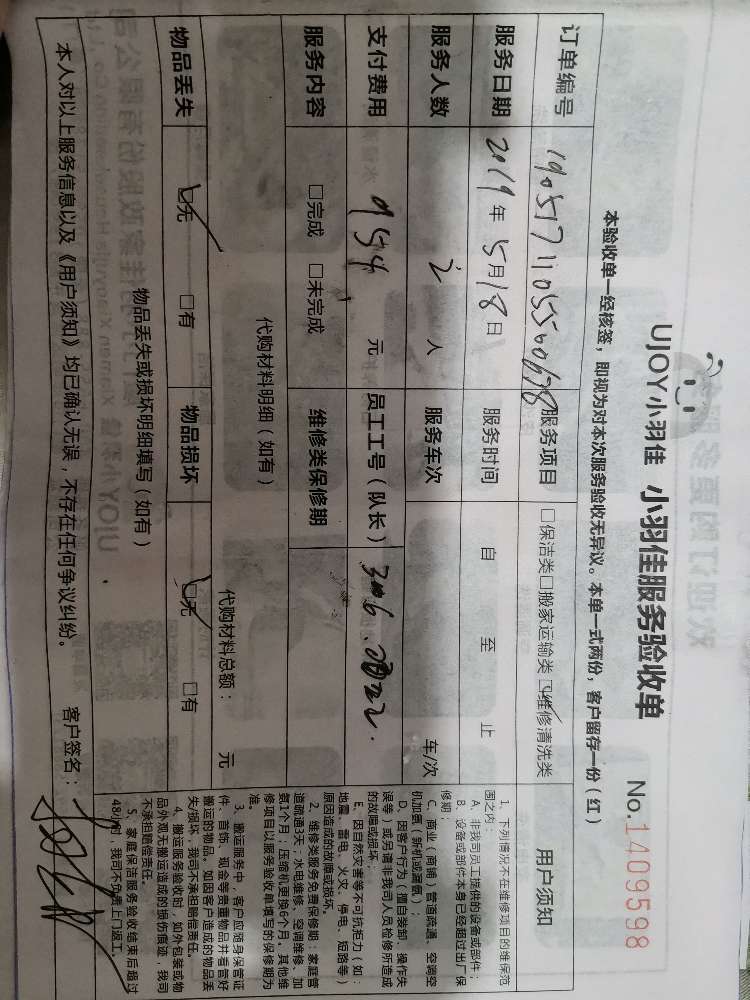 UJOY小羽佳 小羽佳服务验收单
No.1409598
本验收单一经核签，即视为对本次服务验收无异议。本单一式两份，客户留存一份（红）
订单编号 服务项目 □保洁类□搬家运输类☑维修清洗类
服务日期 2019年5月18日 服务时间 自 至 止
服务人数 2人 服务车次 车/次
支付费用 954元 员工工号（队长）
服务内容 □完成 □未完成 维修类保修期
代购材料明细（如有） 代购材料总额： 元
物品丢失 ☑无 □有 物品损坏 ☑无 □有
物品丢失或损坏明细填写（如有）
本人对以上服务信息以及《用户须知》均已确认无误，不存在任何争议纠纷。 客户签名：
用户须知
1、下列情况不在维修项目的维保范
围之内：
A、非我司员工提供的设备或部件；
B、设备或部件本身已经超过出厂保
修期；
C、商业（商铺）管道疏通、空调空
机加氨（新机或漏氨）；
D、因客户行为（擅自装卸、操作失
误等）或另请非我司人员检修所造成
的故障或损坏；
E、因自然灾害等不可抗拒力（如：
地震、雷电、火灾、停电、短路等）
原因造成的故障或损坏。
2、维修类服务免费保修期：家庭管
道疏通3天；水电维修、空调维修、加
氨1个月；压缩机更换6个月，其他维
修项目以服务验收单填写的保修期为
准。
3、搬运服务中，客户应随身保管证
件、首饰、现金等贵重物品并看管好
搬运的物品。如因客户造成的物品丢
失/损坏，我司不承担赔偿责任。
4、搬运服务验收时，如外包装或物
品外观无搬运造成的损伤痕迹，我司
不承担赔偿责任。
5、家庭保洁服务验收结束后超过
48小时，我司不负责上门返工。